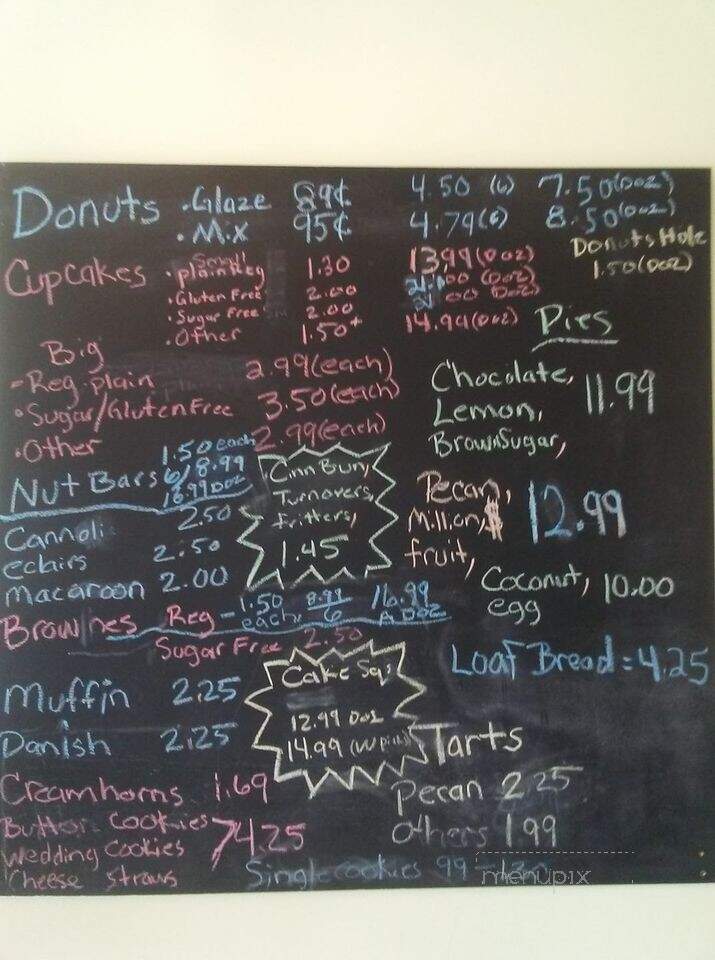 Donuts .Glaze 89¢ 4.50 (6) 7.50(Doz)
.Mix 95¢ 4.79(6) 8.50(Doz)
Donuts Hole
1.50(Doz)
Cupcakes
Small
.plain Reg 1.30 13.99(Doz)
.Gluten Free 2.00 21.00 (Doz)
.Sugar Free 2.00 21.00 Doz)
.Other 1.50+ 14.94(Doz)
Big
-Reg. plain 2.99(each)
.Sugar/Gluten Free 3.50(each)
.Other 2.99(each)
Pies
Chocolate, 11.99
Lemon,
Brown Sugar,
Pecan, 12.99
Million $
fruit,
Coconut, 10.00
egg
Nut Bars 1.50 each
6/8.99
16.99 Doz
Cinn Bun,
Turnovers,
fritters,
1.45
Cannoli 2.50
eclairs 2.50
macaroon 2.00
Brownies Reg - 1.50 each, 8.99/6 16.99 A Doz
Sugar Free 2.50
Loaf Bread = 4.25
Cake Sqs
12.99 Doz
14.99
Muffin 2.25
Danish 2.25
Tarts
Pecan 2.25
Others 1.99
Creamhorns 1.69
Butter cookies
Wedding cookies 4.25
Cheese straws
Single cookies 99
menupix